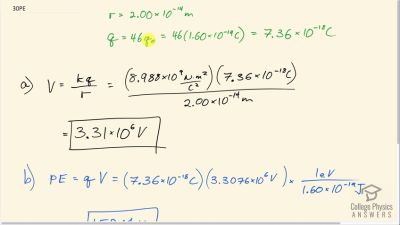 30PE
r = 2.00×10⁻¹⁴ m
q = 46 qₑ = 46(1.60×10⁻¹⁹C) = 7.36×10⁻¹⁸C
a) V = kq/r = (8.988×10⁹ N·m²/C²)(7.36×10⁻¹⁸C)/2.00×10⁻¹⁴ m
= 3.31×10⁶ V
b) PE = qV = (7.36×10⁻¹⁸C)(3.3076×10⁶V) × 1eV/1.60×10⁻¹⁹J
College Physics
ANSWERS